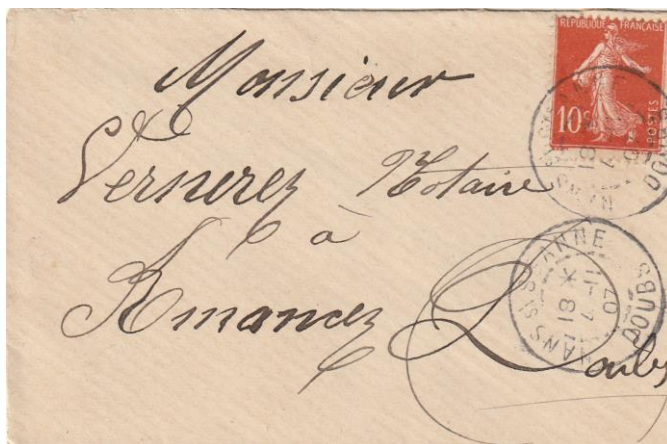 RÉPUBLIQUE FRANÇAISE
10c
POSTES
Monsieur
Vernerey Notaire
à
Amancey Doubs
NANS Ss Ste ANNE
DOUBS